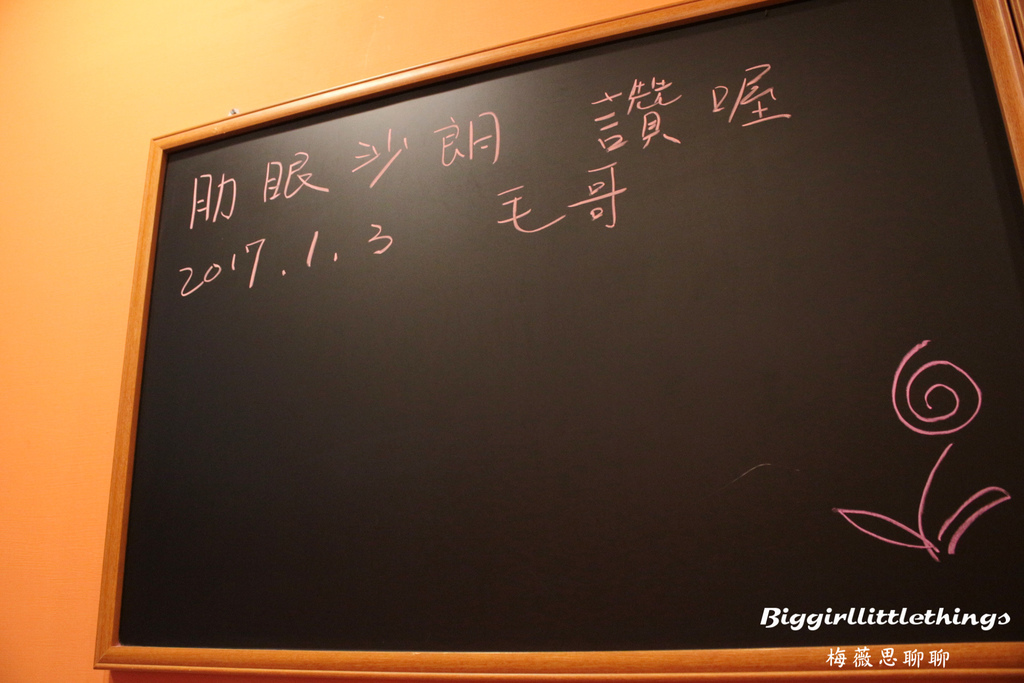 肋眼沙朗 讚喔
2017.1.3 毛哥
Biggirllittlethings
梅薇思聊聊